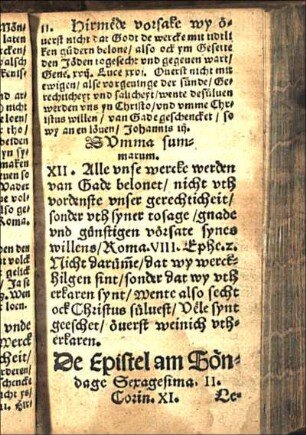 11. Hirmede vorsake wy ö-
uerst nicht dat Godt de wercke mit tidtli
ken güdern belone/ also ock ym Gesette
den Jöden togesecht vnd gegeuen wart/
Gene. xvij. Luce xxi. Ouerst nicht mit
ewigen/ alse vorgeuinge der sünde/ Ge-
rechticheyt vnd salicheyt/ wente desülue
werden vns yn Christo/ vnd vmme Chri-
stus willen/ van Gade geschencket/ so
wy an en löuen/ Johannis iij.
SVmma sum-
marum.
XII. Alle vnse wercke werden
van Gade belonet/ nicht vth
vordenste vnser gerechticheit/
sonder vth syner tosage/ gnade
vnd günstigen vörsate synes
willens/ Roma. VIII. Ephe. 2.
Nicht darüme/ dat wy werck-
hilgen sint/ sonder dat wy vth
erkaren synt/ Wente also secht
ock Christus sülues/ Vele synt
geeschet/ öuerst weinich vth-
erkaren.
De Epistel am Sön-
dage Sexagesima. II.
Corin. XI. Le-